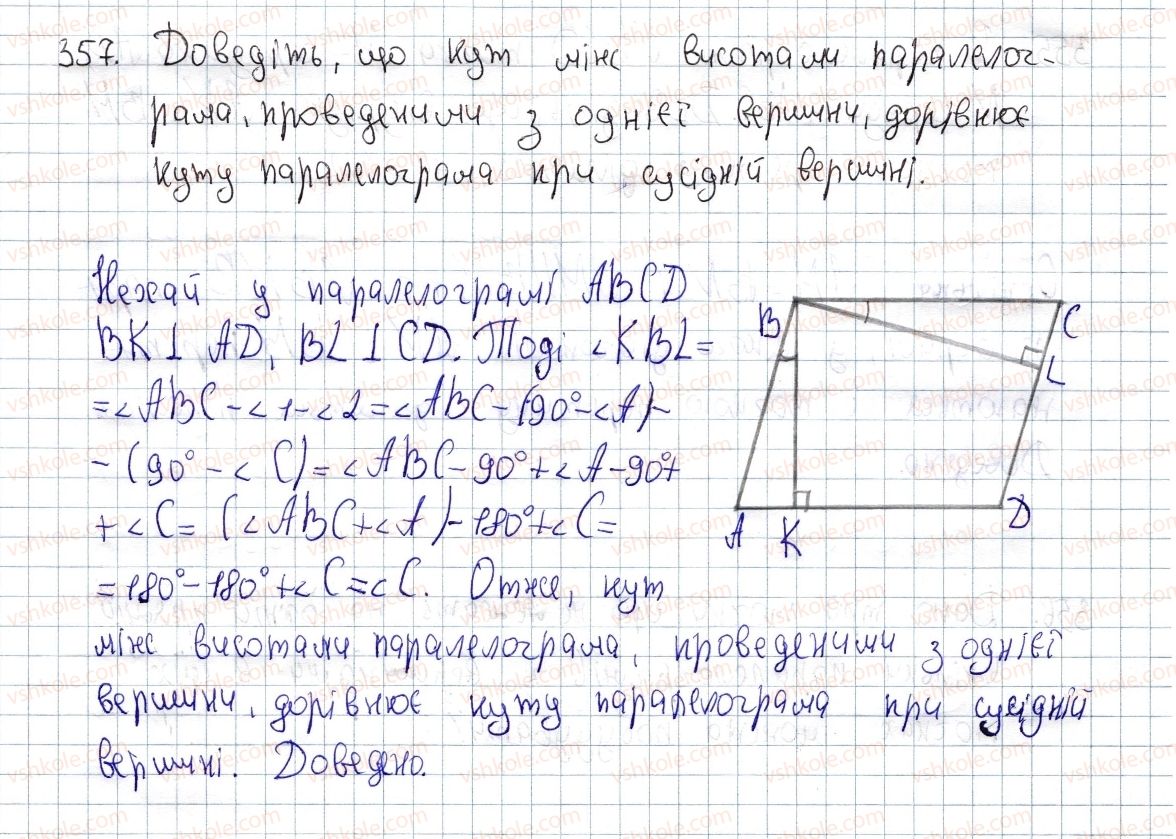 357. Доведіть, що кут між висотами паралелог-
рама, проведеними з однієї вершини, дорівнює
куту паралелограма при сусідній вершині.
Нехай у паралелограмі ABCD
BK⊥AD, BL⊥CD. Тоді ∠KBL=
=∠ABC-∠1-∠2=∠ABC-(90°-∠A)-
-(90°-∠C)=∠ABC-90°+∠A-90°+
+∠C=(∠ABC+∠A)-180°+∠C=
=180°-180°+∠C=∠C. Отже, кут
між висотами паралелограма, проведеними з однієї
вершини, дорівнює куту паралелограма при сусідній
вершині. Доведено.
B
C
L
A
K
D
vshkole.com